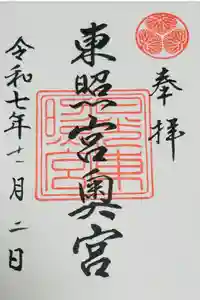 奉拝
東照宮奥宮
令和七年十一月二日